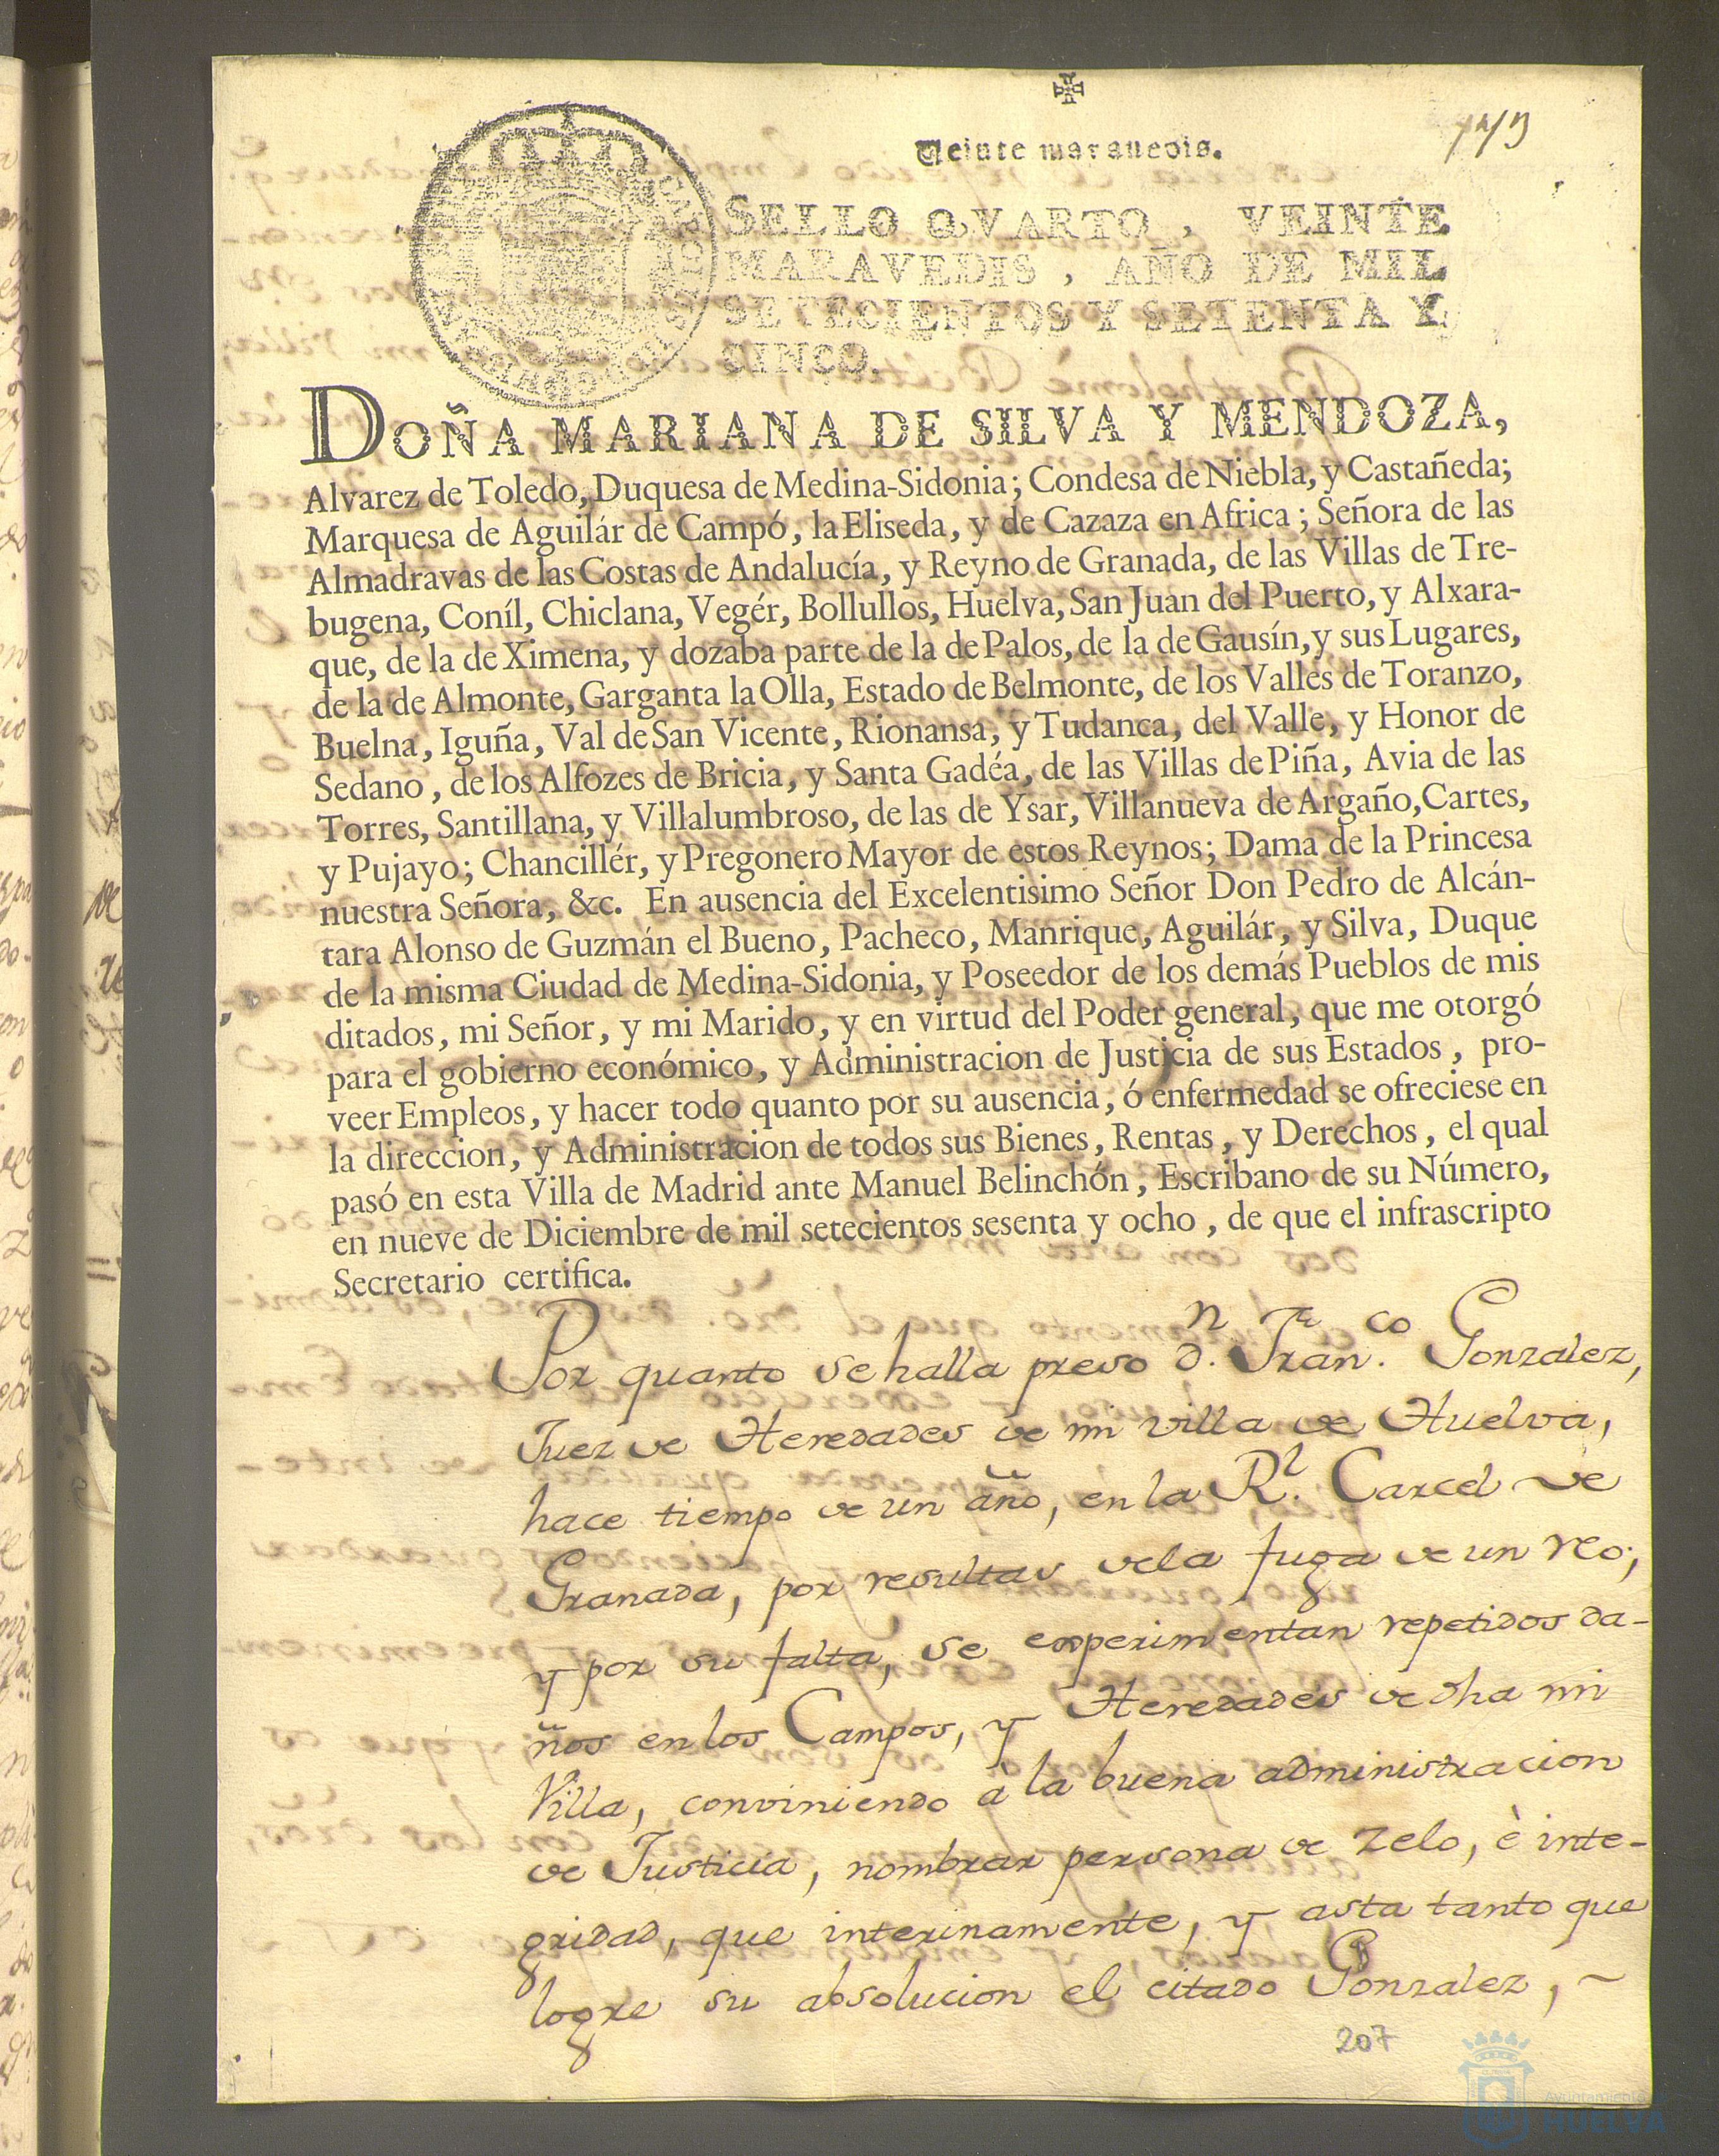 Veinte maravedis.
SELLO QVARTO, VEINTE
MARAVEDIS, AÑO DE MIL
SETECIENTOS Y SETENTA Y
CINCO.
DOÑA MARIANA DE SILVA Y MENDOZA,
Alvarez de Toledo, Duquesa de Medina-Sidonia; Condesa de Niebla, y Castañeda;
Marquesa de Aguilár de Campó, la Eliseda, y de Cazaza en Africa; Señora de las
Almadravas de las Costas de Andalucía, y Reyno de Granada, de las Villas de Tre-
bugena, Coníl, Chiclana, Vegér, Bollullos, Huelva, San Juan del Puerto, y Alxara-
que, de la de Ximena, y dozaba parte de la de Palos, de la de Gausín, y sus Lugares,
de la de Almonte, Garganta la Olla, Estado de Belmonte, de los Valles de Toranzo,
Buelna, Iguña, Val de San Vicente, Rionansa, y Tudanca, del Valle, y Honor de
Sedano, de los Alfozes de Bricia, y Santa Gadéa, de las Villas de Piña, Avia de las
Torres, Santillana, y Villalumbroso, de las de Ysar, Villanueva de Argaño, Cartes,
y Pujayo; Chancillér, y Pregonero Mayor de estos Reynos; Dama de la Princesa
nuestra Señora, &c. En ausencia del Excelentisimo Señor Don Pedro de Alcán-
tara Alonso de Guzmán el Bueno, Pacheco, Manrique, Aguilár, y Silva, Duque
de la misma Ciudad de Medina-Sidonia, y Poseedor de los demás Pueblos de mis
ditados, mi Señor, y mi Marido, y en virtud del Poder general, que me otorgó
para el gobierno económico, y Administracion de Justicia de sus Estados, pro-
veer Empleos, y hacer todo quanto por su ausencia, ó enfermedad se ofreciese en
la direccion, y Administracion de todos sus Bienes, Rentas, y Derechos, el qual
pasó en esta Villa de Madrid ante Manuel Belinchón, Escribano de su Número,
en nueve de Diciembre de mil setecientos sesenta y ocho, de que el infrascripto
Secretario certifica.
Por quanto se halla preso d.n Fran.co Gonzalez,
Juez de Heredades de mi villa de Huelva,
hace tiempo de un año, en la R.l Carcel de
Granada, por resultas dela fuga de un reo;
y por su falta, se experimentan repetidos da-
ños en los Campos, y Heredades de dha mi
Villa, conviniendo à la buena administracion
de Justicia, nombrar persona de zelo, è inte-
gridad, que interinamente, y asta tanto que
logre su absolucion el citado Gonzalez, ~
207
Ayuntamiento
HUELVA